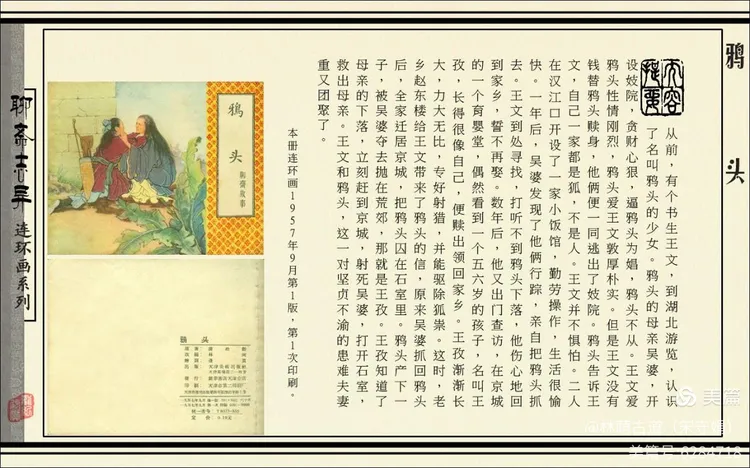 鸦头
内容提要
从前，有个书生王文，到湖北游览，认识
了名叫鸦头的少女。鸦头的母亲吴婆，开
设妓院，贪财心狠，逼鸦头为娼，鸦头不从。王文爱
鸦头性情刚烈，鸦头爱王文敦厚朴实。但是王文没有
钱替鸦头赎身，他俩便一同逃出了妓院。鸦头告诉王
文，自己一家都是狐，不是人。王文并不惧怕。二人
在汉江口开设了一家小饭馆，勤劳操作，生活很愉
快。一年后，吴婆发现了他俩行踪，亲自把鸦头抓
去。王文到处寻找，打听不到鸦头下落，他伤心地回
到家乡，誓不再娶。数年后，他又出门查访，在京城
的一个育婴堂，偶然看到一个五六岁的孩子，名叫王
孜，长得很像自己，便赎出领回家乡。王孜渐渐长
大，力大无比，专好射猎，并能驱除狐祟。这时，老
乡赵东楼给王文带来了鸦头的信，原来吴婆抓回鸦头
后，全家迁居京城，把鸦头囚在石室里。鸦头产下一
子，被吴婆夺去抛在荒郊，那就是王孜。王孜知道了
母亲的下落，立刻赶到京城，射死吴婆，打开石室，
救出母亲。王文和鸦头，这一对坚贞不渝的患难夫妻
重又团聚了。
本册连环画1957年9月第1版，第1次印刷。
鸦头
聊斋故事
鸦头
聊斋志异 连环画系列
美篇